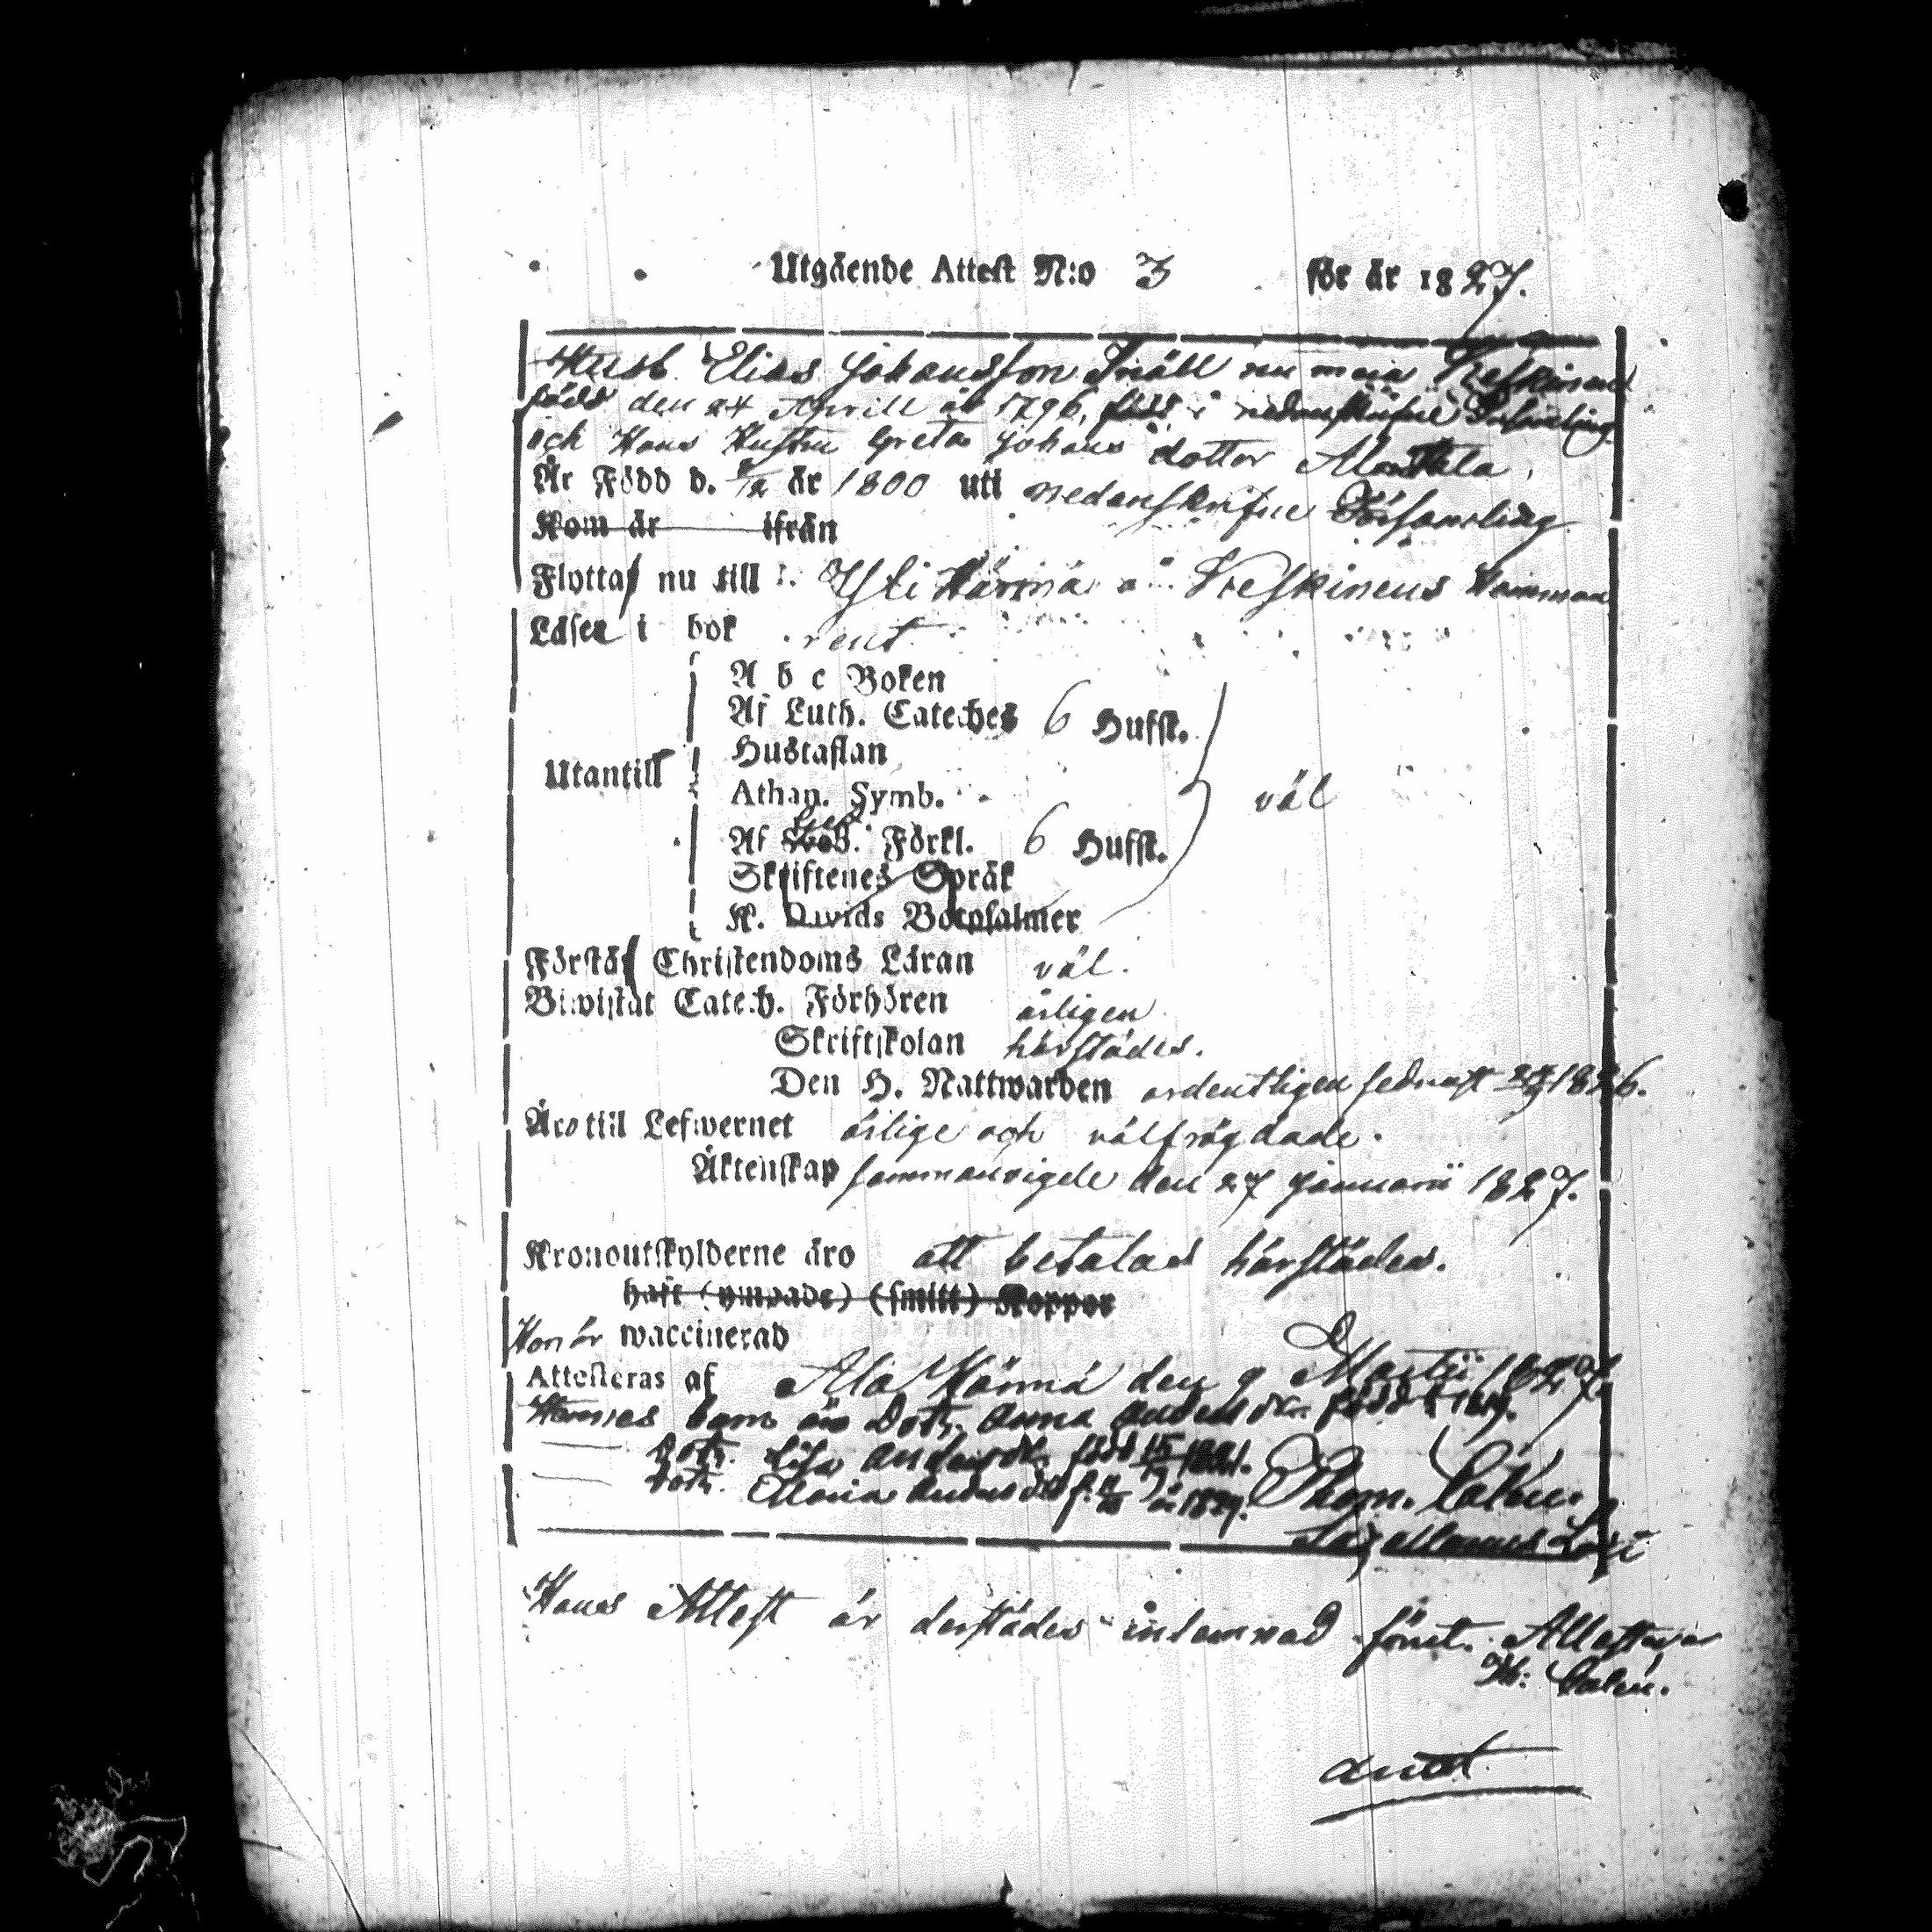 Utgående Attest N:o 3 för år 1827.
Husb. Elias Johansson Snäll nu mera
född den 24 Aprill år 1796, född i nedanskrifne
och Hans Hustru Greta Johans dotter Alantala,
Är Född d. år 1800 uti nedanskrifne Församling
Kom år ifrån
Flytta nu till Yli Härmä Keskinens Hemman
Läser i bok rent
A b c Boken
Af Luth. Cateches 6 Hufst.
Hustaflan
Utantill
Athan. Symb.
väl
Af Sveb. Förkl. 6 Hufst.
Skriftenes Språk
K. Davids Botpsalmer
Förstå Christendoms Läran väl.
Biwistat Catech. Förhören årligen
Skriftskolan härstädes.
Den H. Nattwarden ordentligen sednast 1826.
Äro till Lefwernet ärlige och välfrägdade.
Äktenskap sammanvigde den 27 Januarii 1827.
Kronoutskylderne äro att betalas härstädes.
haft (ympade) (smitt) Koppor
Hon är waccinerad
Attesteras af Ala Härmä den 9 Martii 1827.
Hennes barn äro Dotr. Anna Andersdr. född 1819.
Dotr. Lisa Andersdr. född 15 1821.
Dotr. Maria Andersdr f.
Thom. Calén.
Hans Attest är derstädes inlemnad förut. Attesterar
Th: Calén.